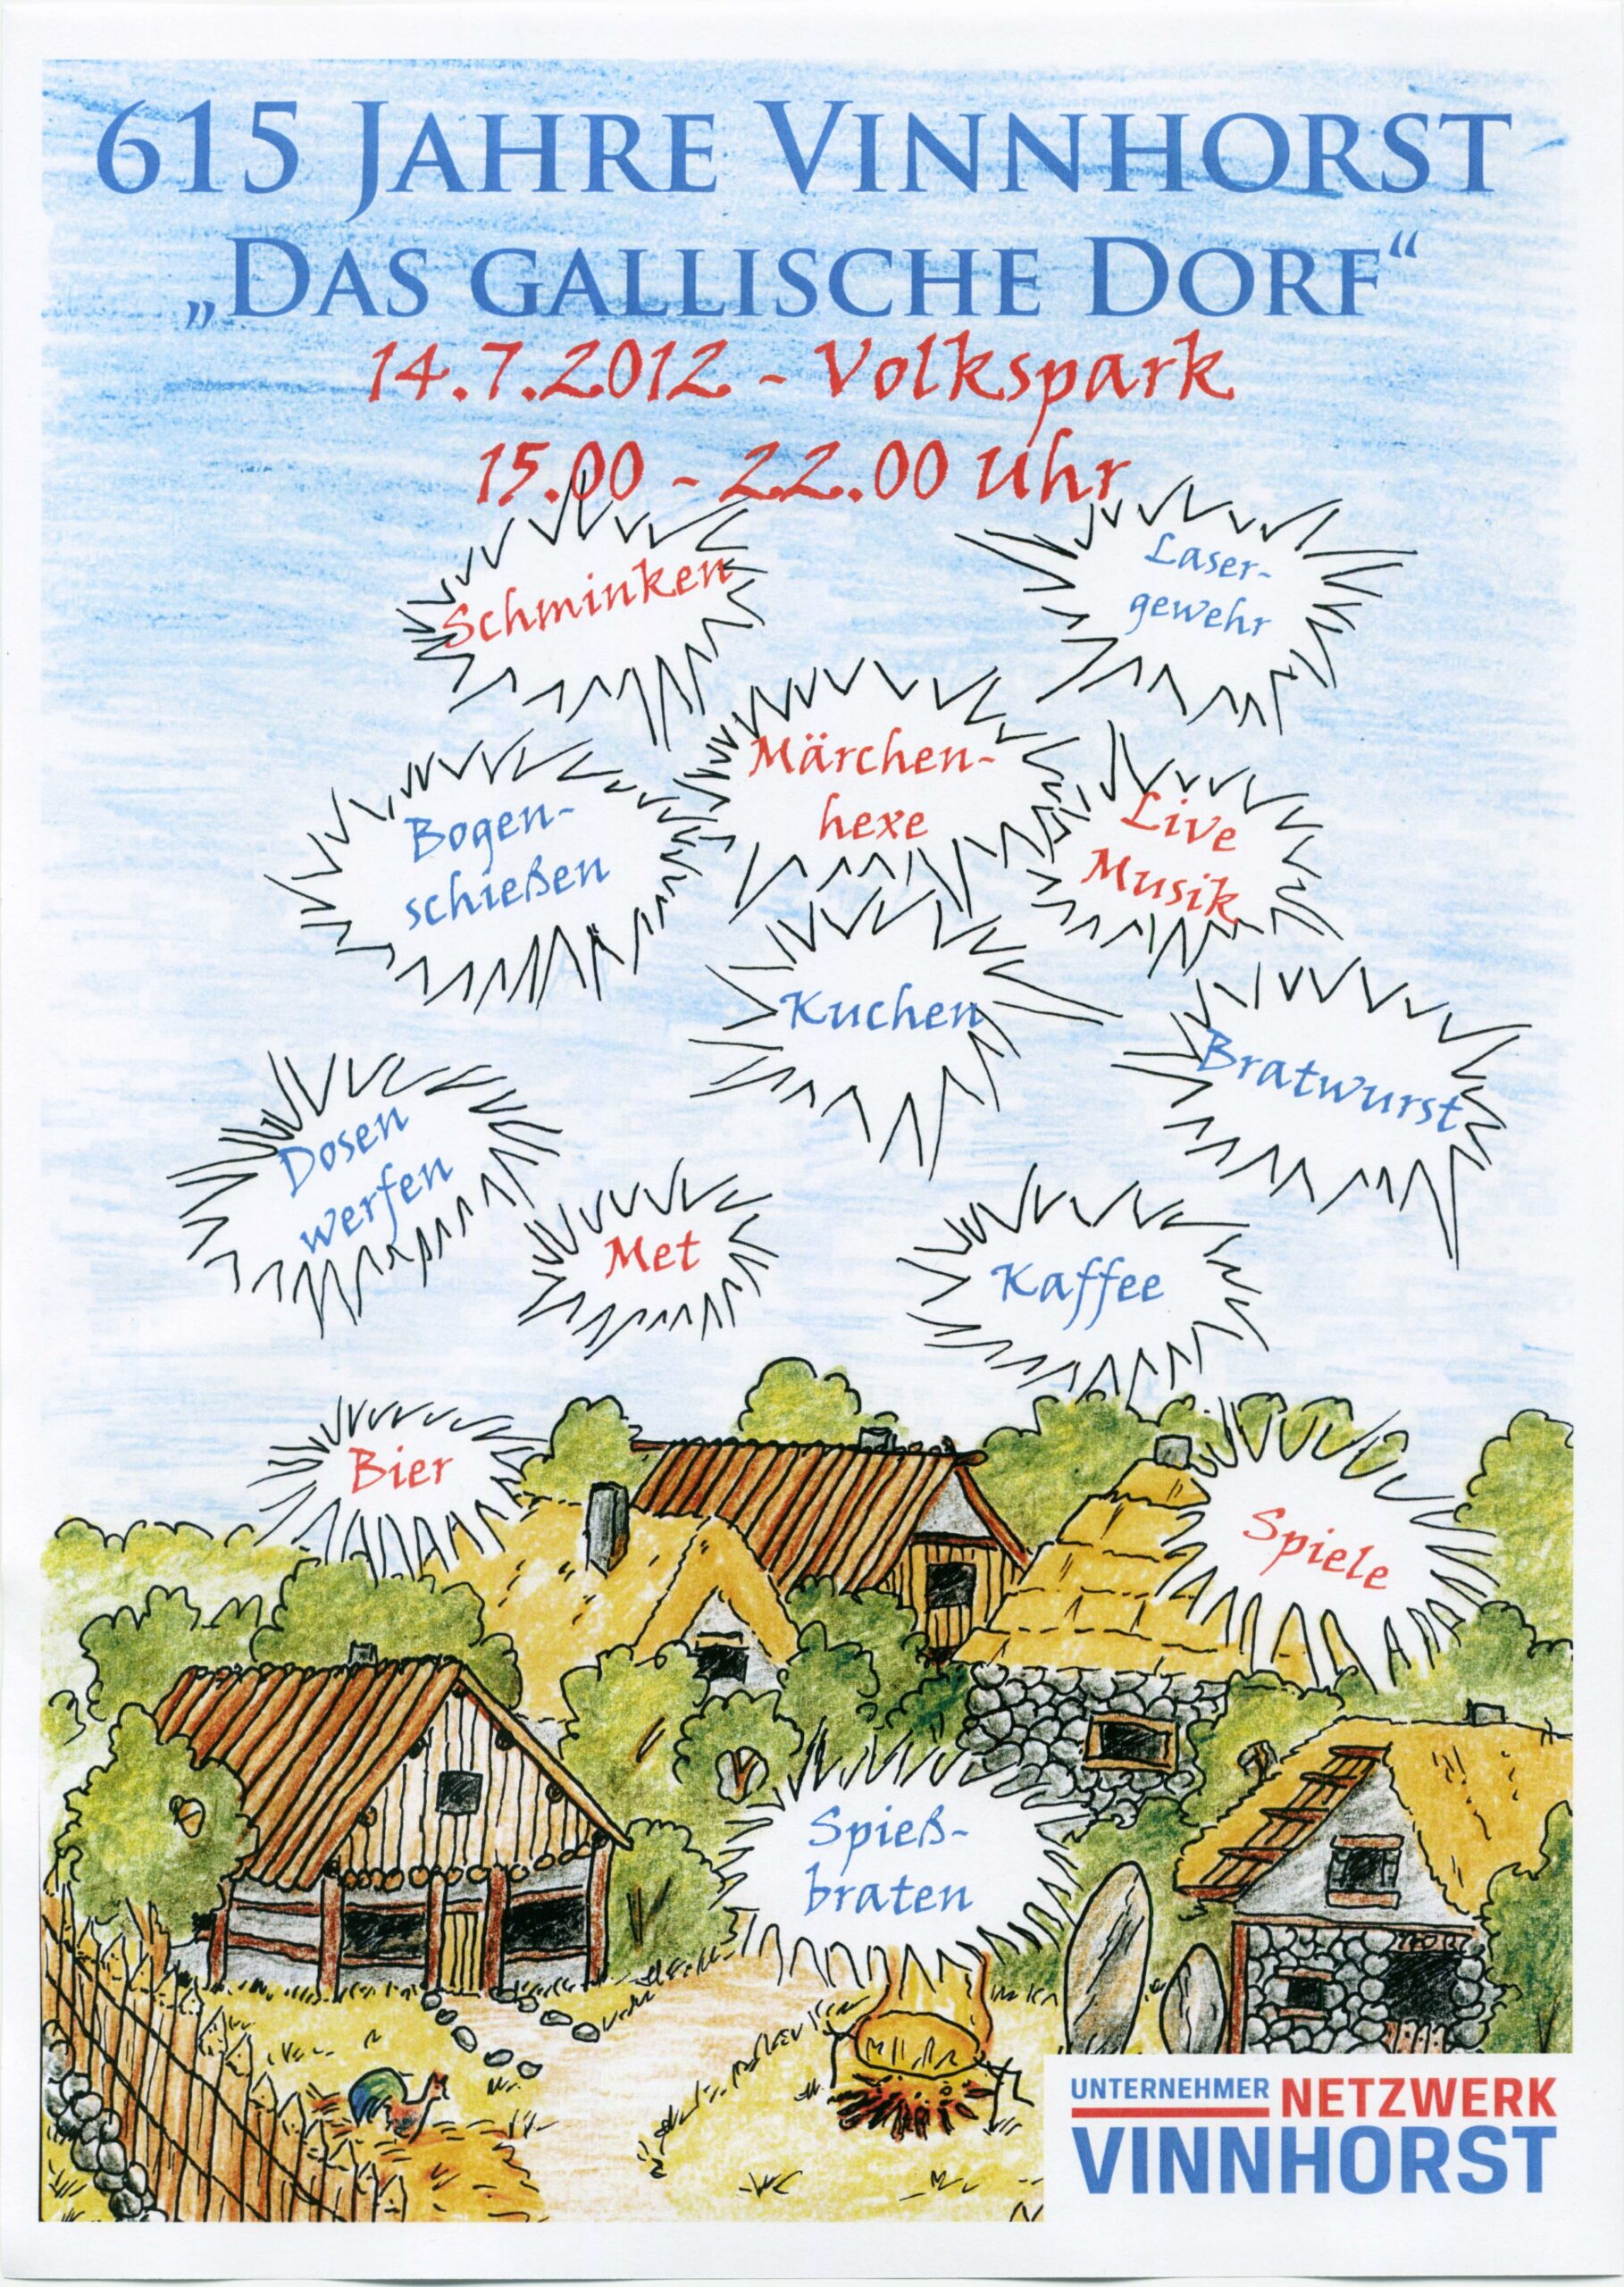 615 Jahre Vinnhorst
„Das gallische Dorf“
14.7.2012 - Volkspark
15.00 - 22.00 Uhr
Schminken
Laser-
gewehr
Märchen-
hexe
Bogen-
schießen
Live
Musik
Kuchen
Bratwurst
Dosen
werfen
Met
Kaffee
Bier
Spiele
Spieß-
braten
UNTERNEHMER NETZWERK
VINNHORST